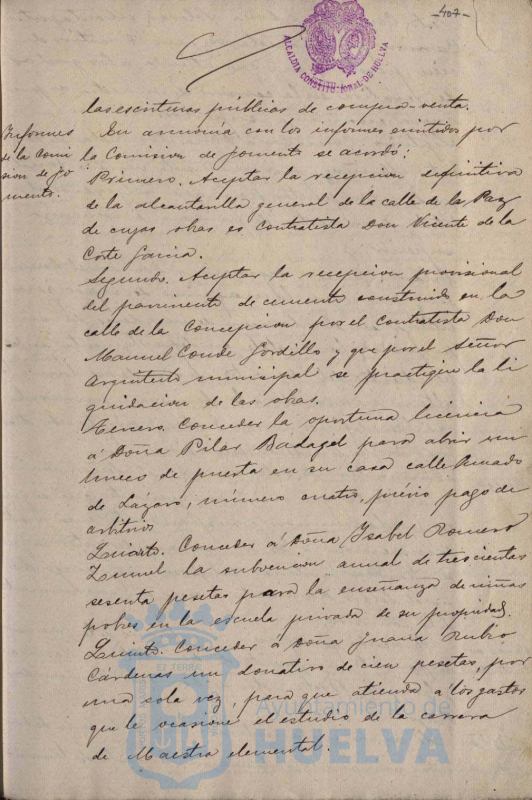 -407-
ALCALDIA CONSTITUCIONAL DE HUELVA
las escrituras públicas de compra-venta.
Informes
de la Comi
sion de Fo
mento.
En armonía con los informes emitidos por
la Comision de Fomento se acordó:
Primero. Aceptar la recepcion definitiva
de la alcantarilla general de la calle de la Paz
de cuyas obras es contratista Don Vicente de la
Corte Garcia.
Segundo. Aceptar la recepcion provisional
del pavimento de cemento construido en la
calle de la Concepcion por el contratista Don
Manuel Conde Gordillo, y que por el Señor
Arquitecto municipal se practique la li
quidacion de las obras.
Tercero. Conceder la oportuna licencia
á Doña Pilar Badagel para abrir un
hueco de puerta en su casa calle Amado
de Lázaro, número cuatro, prévio pago de
arbitrios
Cuarto. Conceder á Doña Ysabel Romero
Zunel la subvencion anual de trescientas
sesenta pesetas para la enseñanza de niñas
pobres en la escuela privada de su propiedad.
Quinto. Conceder á Doña Juana Rubio
Cárdenas un donativo de cien pesetas, por
una sola vez, para que atienda á los gastos
que le ocasione el estudio de la carrera
de Maestra elemental.
Ayuntamiento de
HUELVA